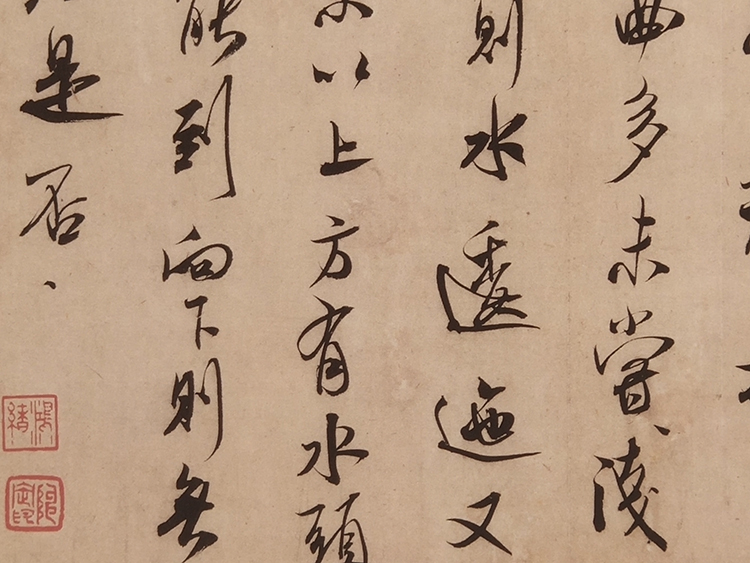 曲多未嘗淺
則水逶迤又
以上方有水頭
能到向下則無
是否
鴻緒